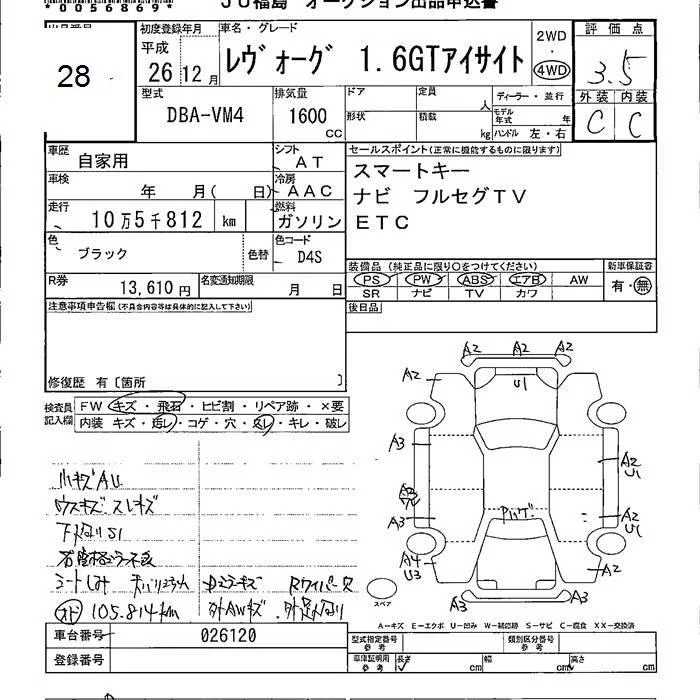 *0056869*
JU福島 オークション出品申込書
28
初度登録年月
平成
26 12 月
車名・グレード
レヴォーグ 1.6GTアイサイト
2WD
・
4WD
評価点
3.5
型式
DBA-VM4
排気量
1600
CC
ドア
定員
人
形状
積載
kg
ディーラー・並行
モデル年式
年
ハンドル 左・右
外装 内装
C C
車歴
自家用
シフト
AT
車検
年 月( 日)
冷房
AAC
走行
10万5千812 km
燃料
ガソリン
色
ブラック
色替
色コード
D4S
セールスポイント(正常に機能するものに限ります)
スマートキー
ナビ フルセグTV
ETC
R券
13,610 円
名変通知期限
月 日
装備品 (純正品に限り○をつけてください)
PS PW ABS エアB AW
SR ナビ TV カワ
新車保証書
有・無
注意事項申告欄(不具合内容等は具体的に記入して下さい)
後日品
修復歴 有〔箇所 〕
検査員記入欄
FW キズ・飛石・ヒビ割・リペア跡・×要
内装 キズ・汚レ・コゲ・穴・スレ・キレ・破レ
小キズAU
ウスキズ スレキズ
下廻りS1
シートしみ
Rワイパー欠
オド 105.814km
外AWキズ
A2 A2 A2
A2 U1 A2
A3
A2
U1
A3
A2
U1
A4
U3
A2
A3 A3
スペア
A-キズ E-エクボ U-凹み W-補修跡 S-サビ C-腐食 XX-交換済
車台番号
026120
登録番号
型式指定番号
参考
類別区分番号
参考
車庫証明用
参考
長さ
cm
幅
cm
高さ
cm